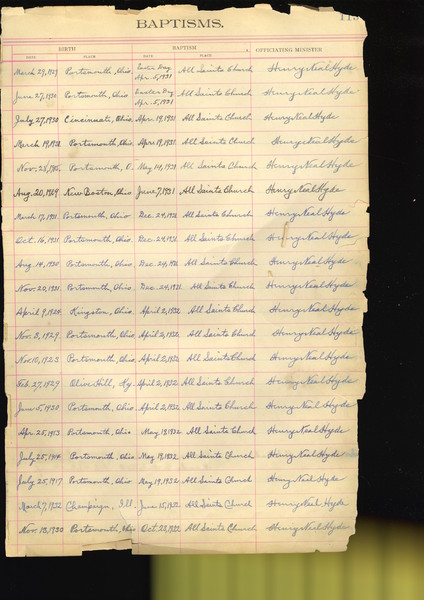 BAPTISMS.
BIRTH BAPTISM OFFICIATING MINISTER
DATE PLACE DATE PLACE
March 29, 1929 Portsmouth, Ohio Easter Day Apr. 5, 1931 All Saints Church Henry Neal Hyde
June 27, 1930 Portsmouth, Ohio Easter Day Apr. 5, 1931 All Saints Church Henry Neal Hyde
July 27, 1930 Cincinnati, Ohio Apr. 19, 1931 All Saints Church Henry Neal Hyde
March 19, 1931 Portsmouth, Ohio Apr. 19, 1931 All Saints Church Henry Neal Hyde
Nov. 28, Portsmouth, O. May 14, 1931 All Saints Church Henry Neal Hyde
Aug. 20, 1909 New Boston, Ohio June 7, 1931 All Saints Church Henry Neal Hyde
March 17, 1931 Portsmouth, Ohio Dec. 24, 1931 All Saints Church Henry Neal Hyde
Oct. 16, 1931 Portsmouth, Ohio Dec. 24, 1931 All Saints Church Henry Neal Hyde
Aug. 14, 1930 Portsmouth, Ohio Dec. 24, 1931 All Saints Church Henry Neal Hyde
Nov. 20, 1931 Portsmouth, Ohio Dec. 24, 1931 All Saints Church Henry Neal Hyde
April 9, 1924 Kingston, Ohio April 2, 1932 All Saints Church Henry Neal Hyde
Nov. 8, 1929 Portsmouth, Ohio April 2, 1932 All Saints Church Henry Neal Hyde
Nov. 10, 1923 Portsmouth, Ohio April 2, 1932 All Saints Church Henry Neal Hyde
Feb. 27, 1929 Olive Hill, Ky. April 2, 1932 All Saints Church Henry Neal Hyde
June 5, 1930 Portsmouth, Ohio April 2, 1932 All Saints Church Henry Neal Hyde
Apr. 25, 1913 Portsmouth, Ohio May 19, 1932 All Saints Church Henry Neal Hyde
July 28, 1914 Portsmouth, Ohio May 19, 1932 All Saints Church Henry Neal Hyde
July 25, 1917 Portsmouth, Ohio May 19, 1932 All Saints Church Henry Neal Hyde
March 7, 1932 Champaign, Ill. June 15, 1932 All Saints Church Henry Neal Hyde
Nov. 13, 1930 Portsmouth, Ohio Oct. 23, 1932 All Saints Church Henry Neal Hyde